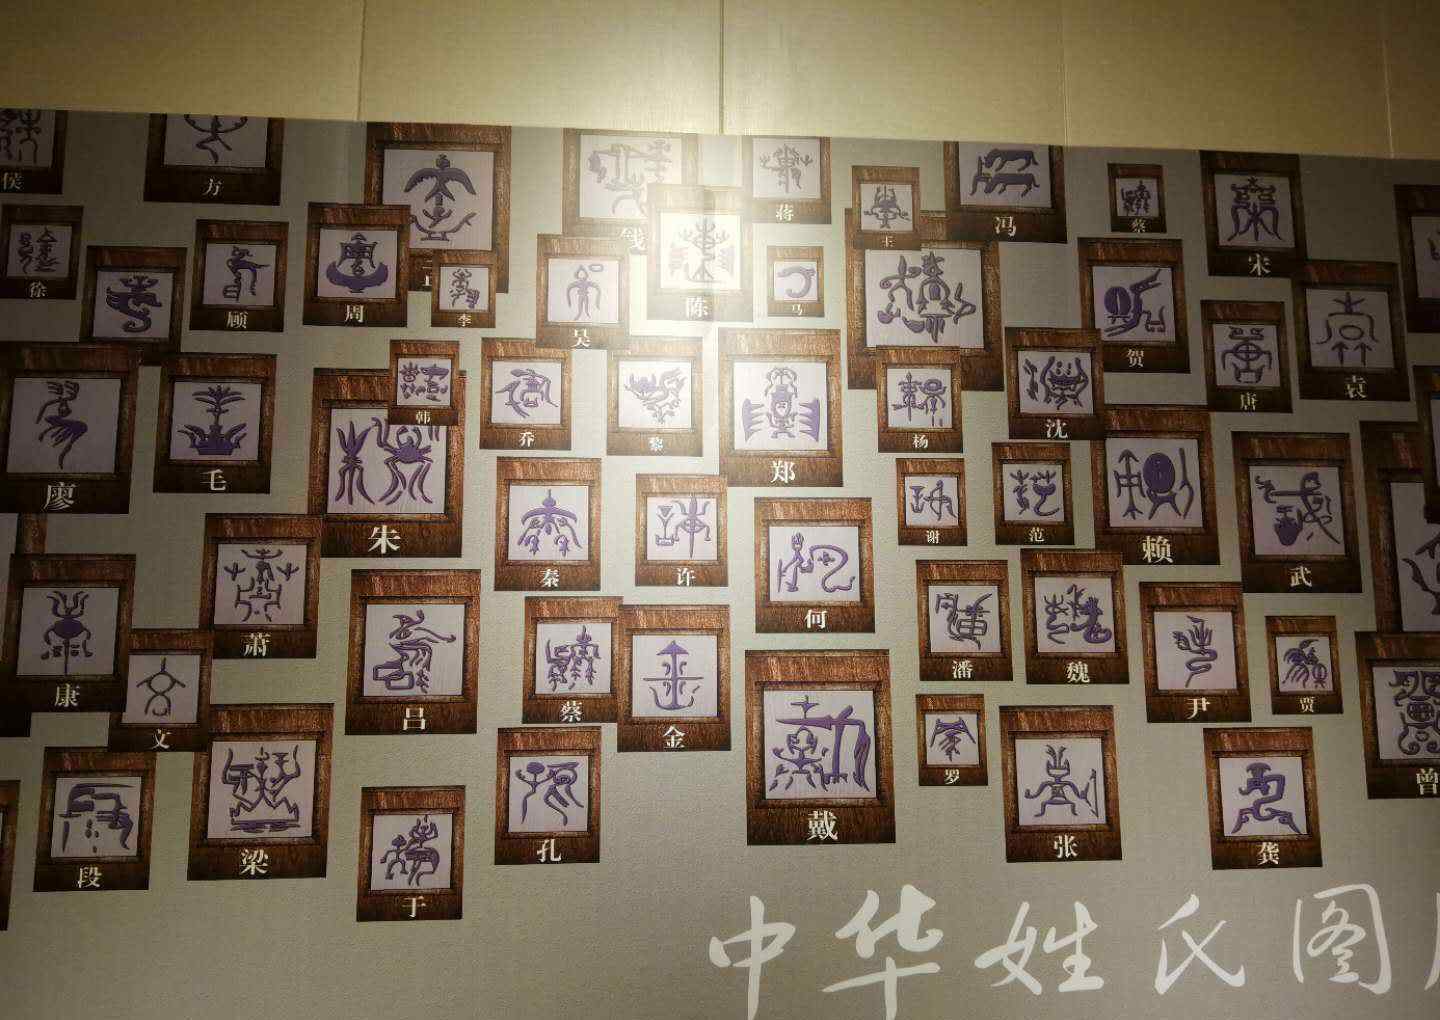 侯
方
钱
蒋
王
冯
蔡
宋
徐
顾
周
李
吴
陈
马
贺
唐
袁
廖
毛
朱
韩
乔
黎
郑
杨
沈
谢
范
赖
武
秦
许
何
萧
康
文
吕
蔡
金
潘
魏
尹
贾
曾
段
梁
于
孔
戴
罗
张
龚
中华姓氏图